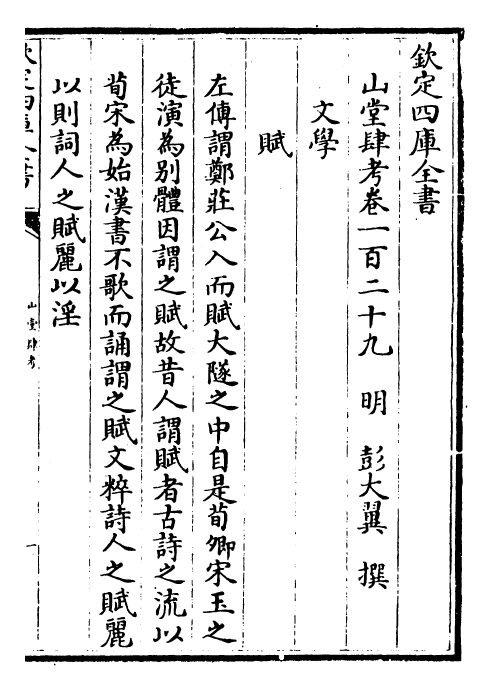 欽定四庫全書
山堂肆考卷一百二十九　明　彭大翼　撰
文學
賦
左傳謂鄭莊公入而賦大隧之中自是荀卿宋玉之
徒演為別體因謂之賦故昔人謂賦者古詩之流以
荀宋為始漢書不歌而誦謂之賦文粹詩人之賦麗
以則詞人之賦麗以淫
山堂肆考
一